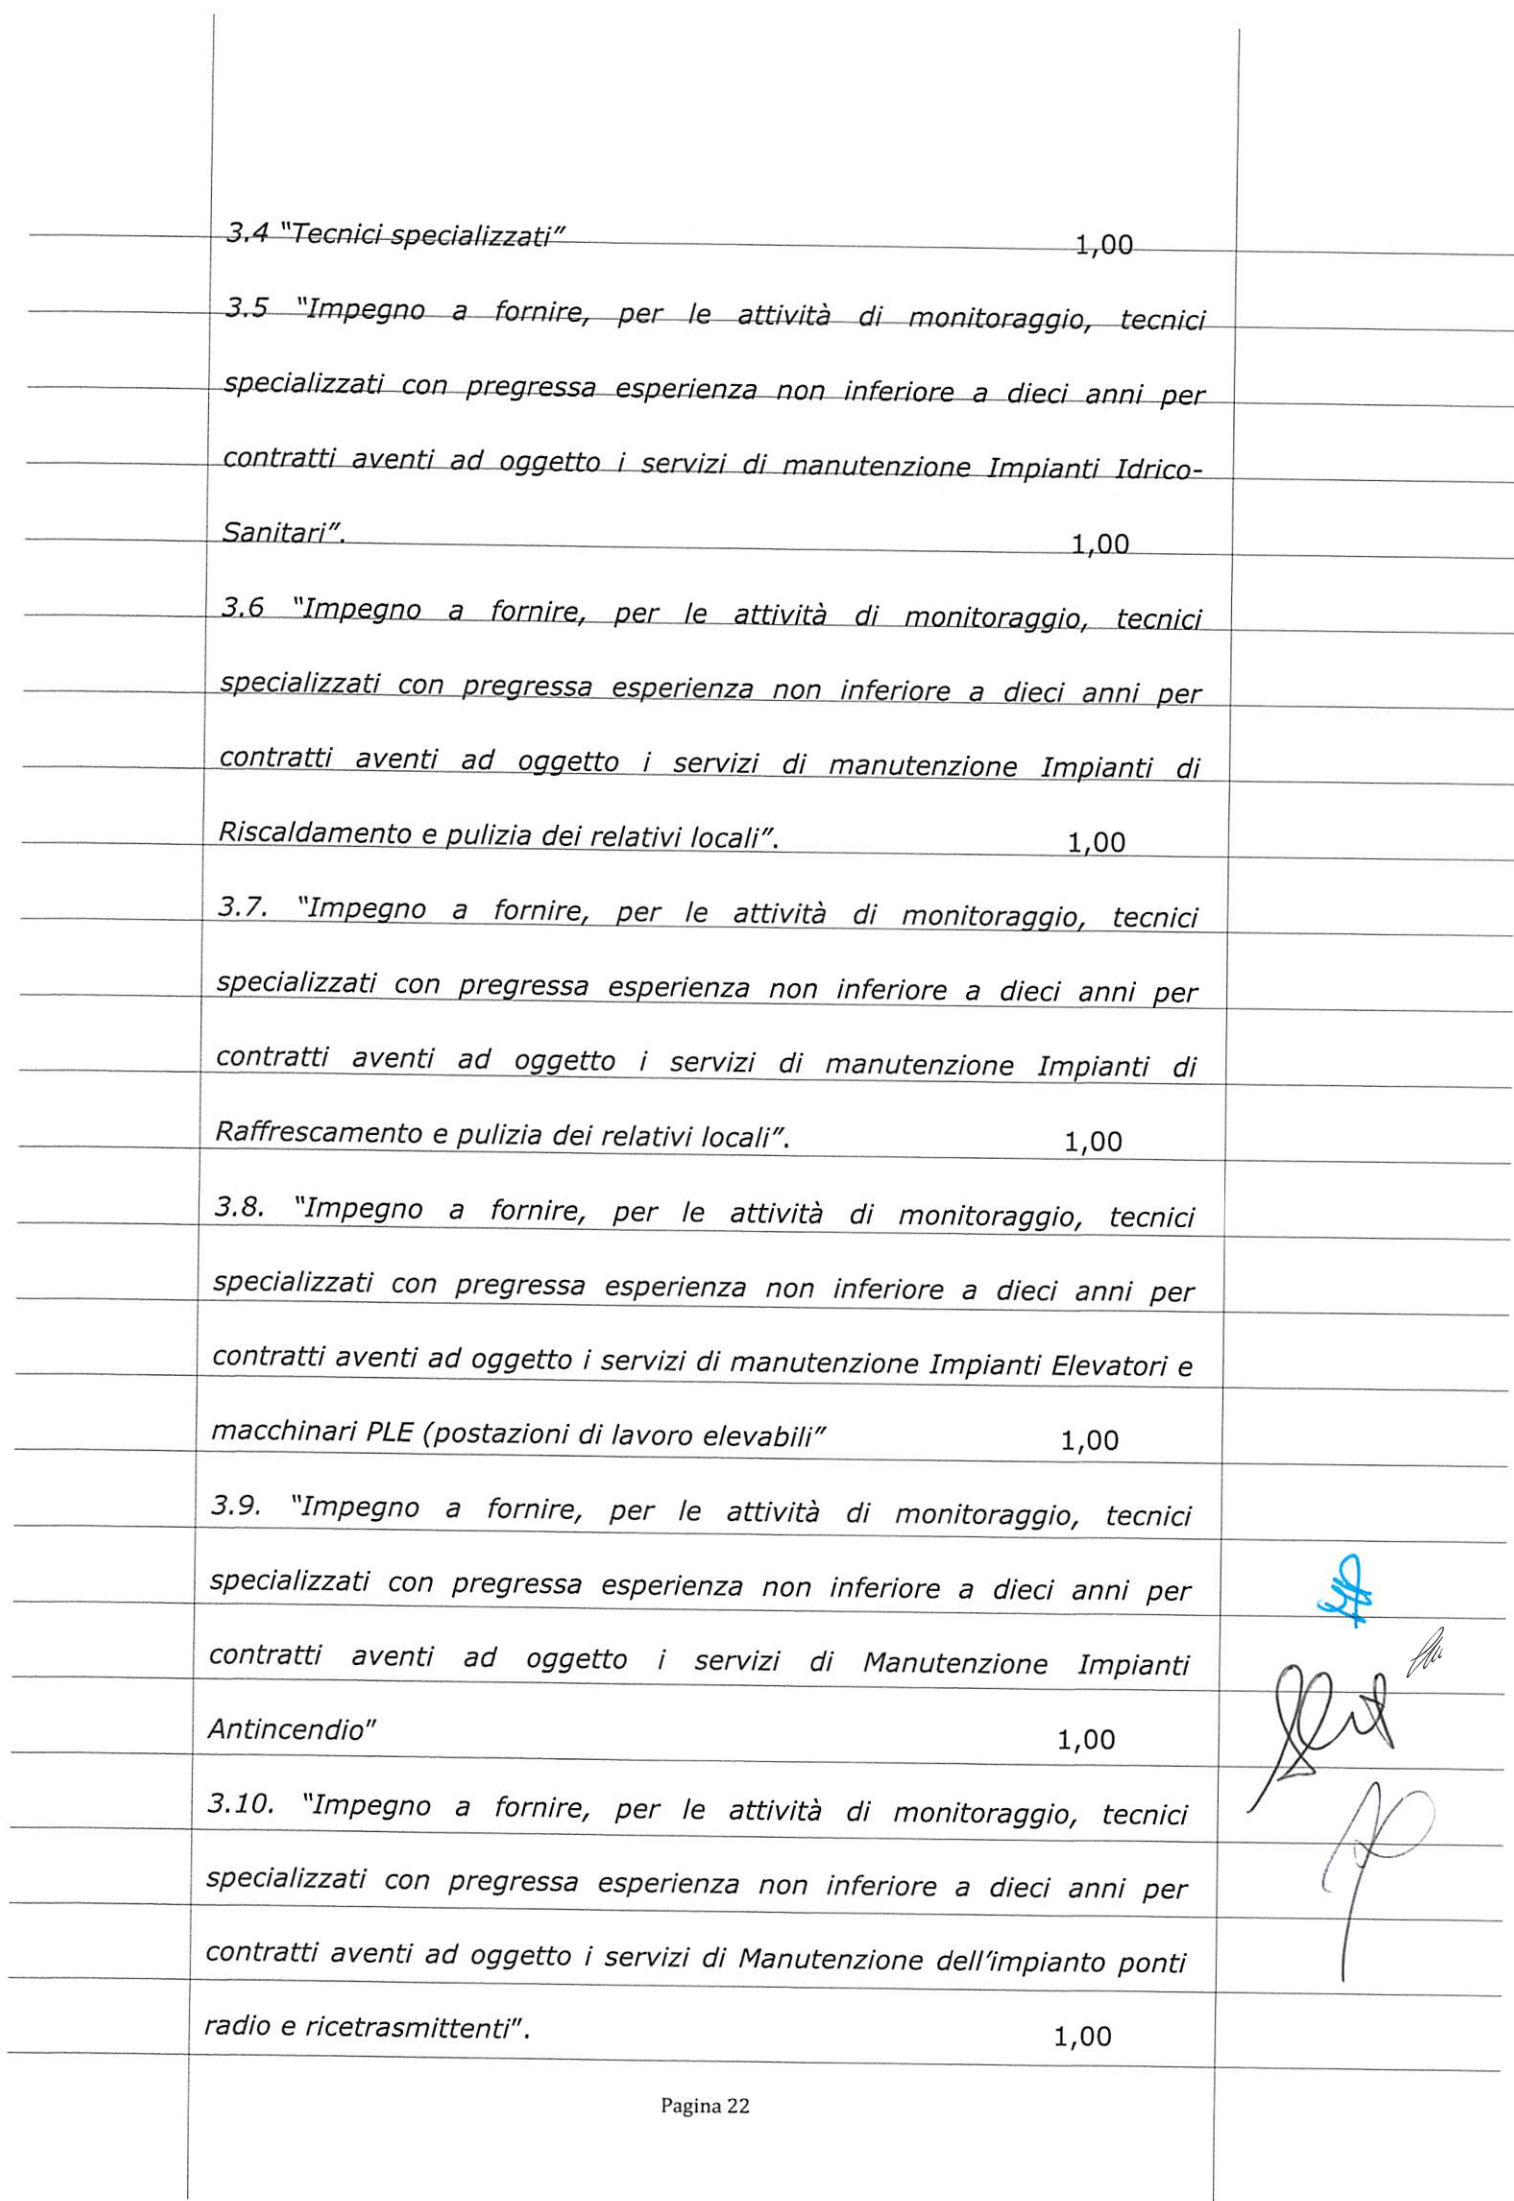 3.4 “Tecnici specializzati” 1,00
3.5 “Impegno a fornire, per le attività di monitoraggio, tecnici
specializzati con pregressa esperienza non inferiore a dieci anni per
contratti aventi ad oggetto i servizi di manutenzione Impianti Idrico-
Sanitari”. 1,00
3.6 “Impegno a fornire, per le attività di monitoraggio, tecnici
specializzati con pregressa esperienza non inferiore a dieci anni per
contratti aventi ad oggetto i servizi di manutenzione Impianti di
Riscaldamento e pulizia dei relativi locali”. 1,00
3.7. “Impegno a fornire, per le attività di monitoraggio, tecnici
specializzati con pregressa esperienza non inferiore a dieci anni per
contratti aventi ad oggetto i servizi di manutenzione Impianti di
Raffrescamento e pulizia dei relativi locali”. 1,00
3.8. “Impegno a fornire, per le attività di monitoraggio, tecnici
specializzati con pregressa esperienza non inferiore a dieci anni per
contratti aventi ad oggetto i servizi di manutenzione Impianti Elevatori e
macchinari PLE (postazioni di lavoro elevabili” 1,00
3.9. “Impegno a fornire, per le attività di monitoraggio, tecnici
specializzati con pregressa esperienza non inferiore a dieci anni per
contratti aventi ad oggetto i servizi di Manutenzione Impianti
Antincendio” 1,00
3.10. “Impegno a fornire, per le attività di monitoraggio, tecnici
specializzati con pregressa esperienza non inferiore a dieci anni per
contratti aventi ad oggetto i servizi di Manutenzione dell’impianto ponti
radio e ricetrasmittenti”. 1,00
Pagina 22